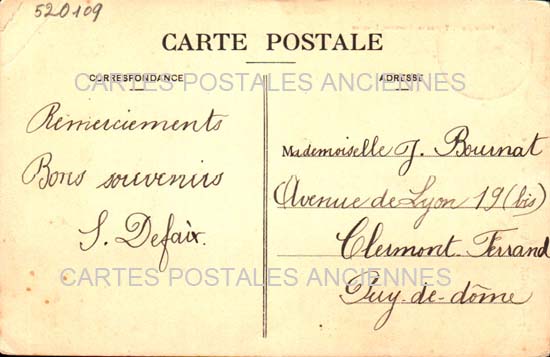 520109
CARTE POSTALE
CORRESPONDANCE
ADRESSE
CARTES POSTALES ANCIENNES
Remerciements
Bons souvenirs
S. Defaix.
Mademoiselle J. Bournat
Avenue de Lyon 19 (bis)
Clermont-Ferrand
Puy-de-dôme
CARTES POSTALES ANCIENNES